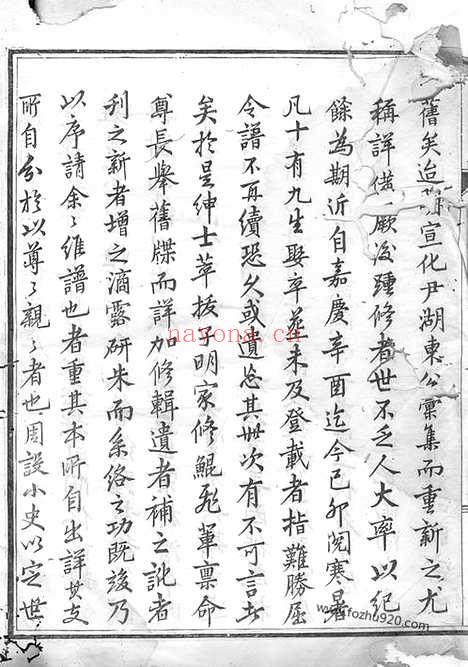 舊矣迨宣化尹湖東公彙集而重新之尤
稱詳備厥後踵修者世不乏人大率以紀
餘為期近自嘉慶辛酉迄今己卯閱寒暑
凡十有九生娶卒葬未及登載者指難勝屈
令譜不再續恐久或遺忘其世次有不可言者
矣於是紳士萃拔子明家修鯤飛軰禀命
尊長舉舊牒而詳加修輯遺者補之訛者
刊之新者增之滴露研朱而系絡之功既竣乃
以序請余〻維譜也者重其本所自出詳其支
所自分於以尊〻親〻者也周設小史以定世
nayona.cn
www.fozhu920.com